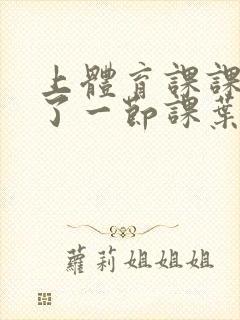 上體育課課
了一節課葉
蘿莉姐姐姐